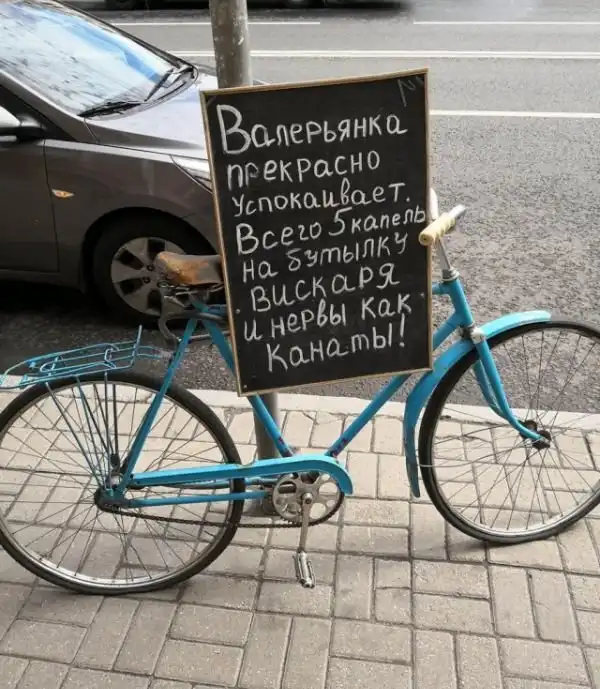 Валерьянка
прекрасно
успокаивает.
Всего 5 капель
на бутылку
вискаря
и нервы как
канаты!